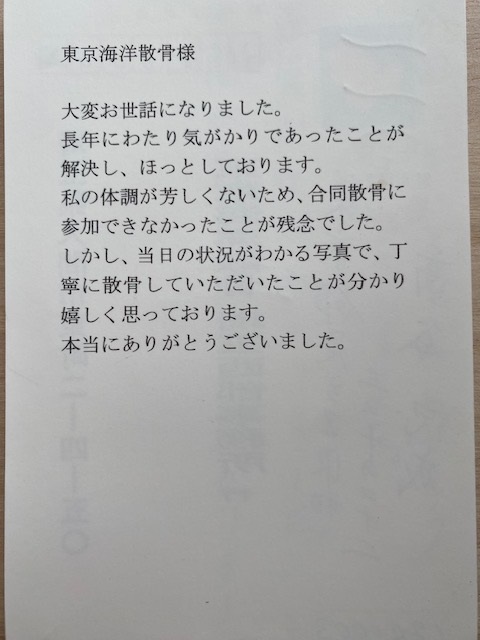 東京海洋散骨様
大変お世話になりました。
長年にわたり気がかりであったことが
解決し、ほっとしております。
私の体調が芳しくないため、合同散骨に
参加できなかったことが残念でした。
しかし、当日の状況がわかる写真で、丁
寧に散骨していただいたことが分かり
嬉しく思っております。
本当にありがとうございました。